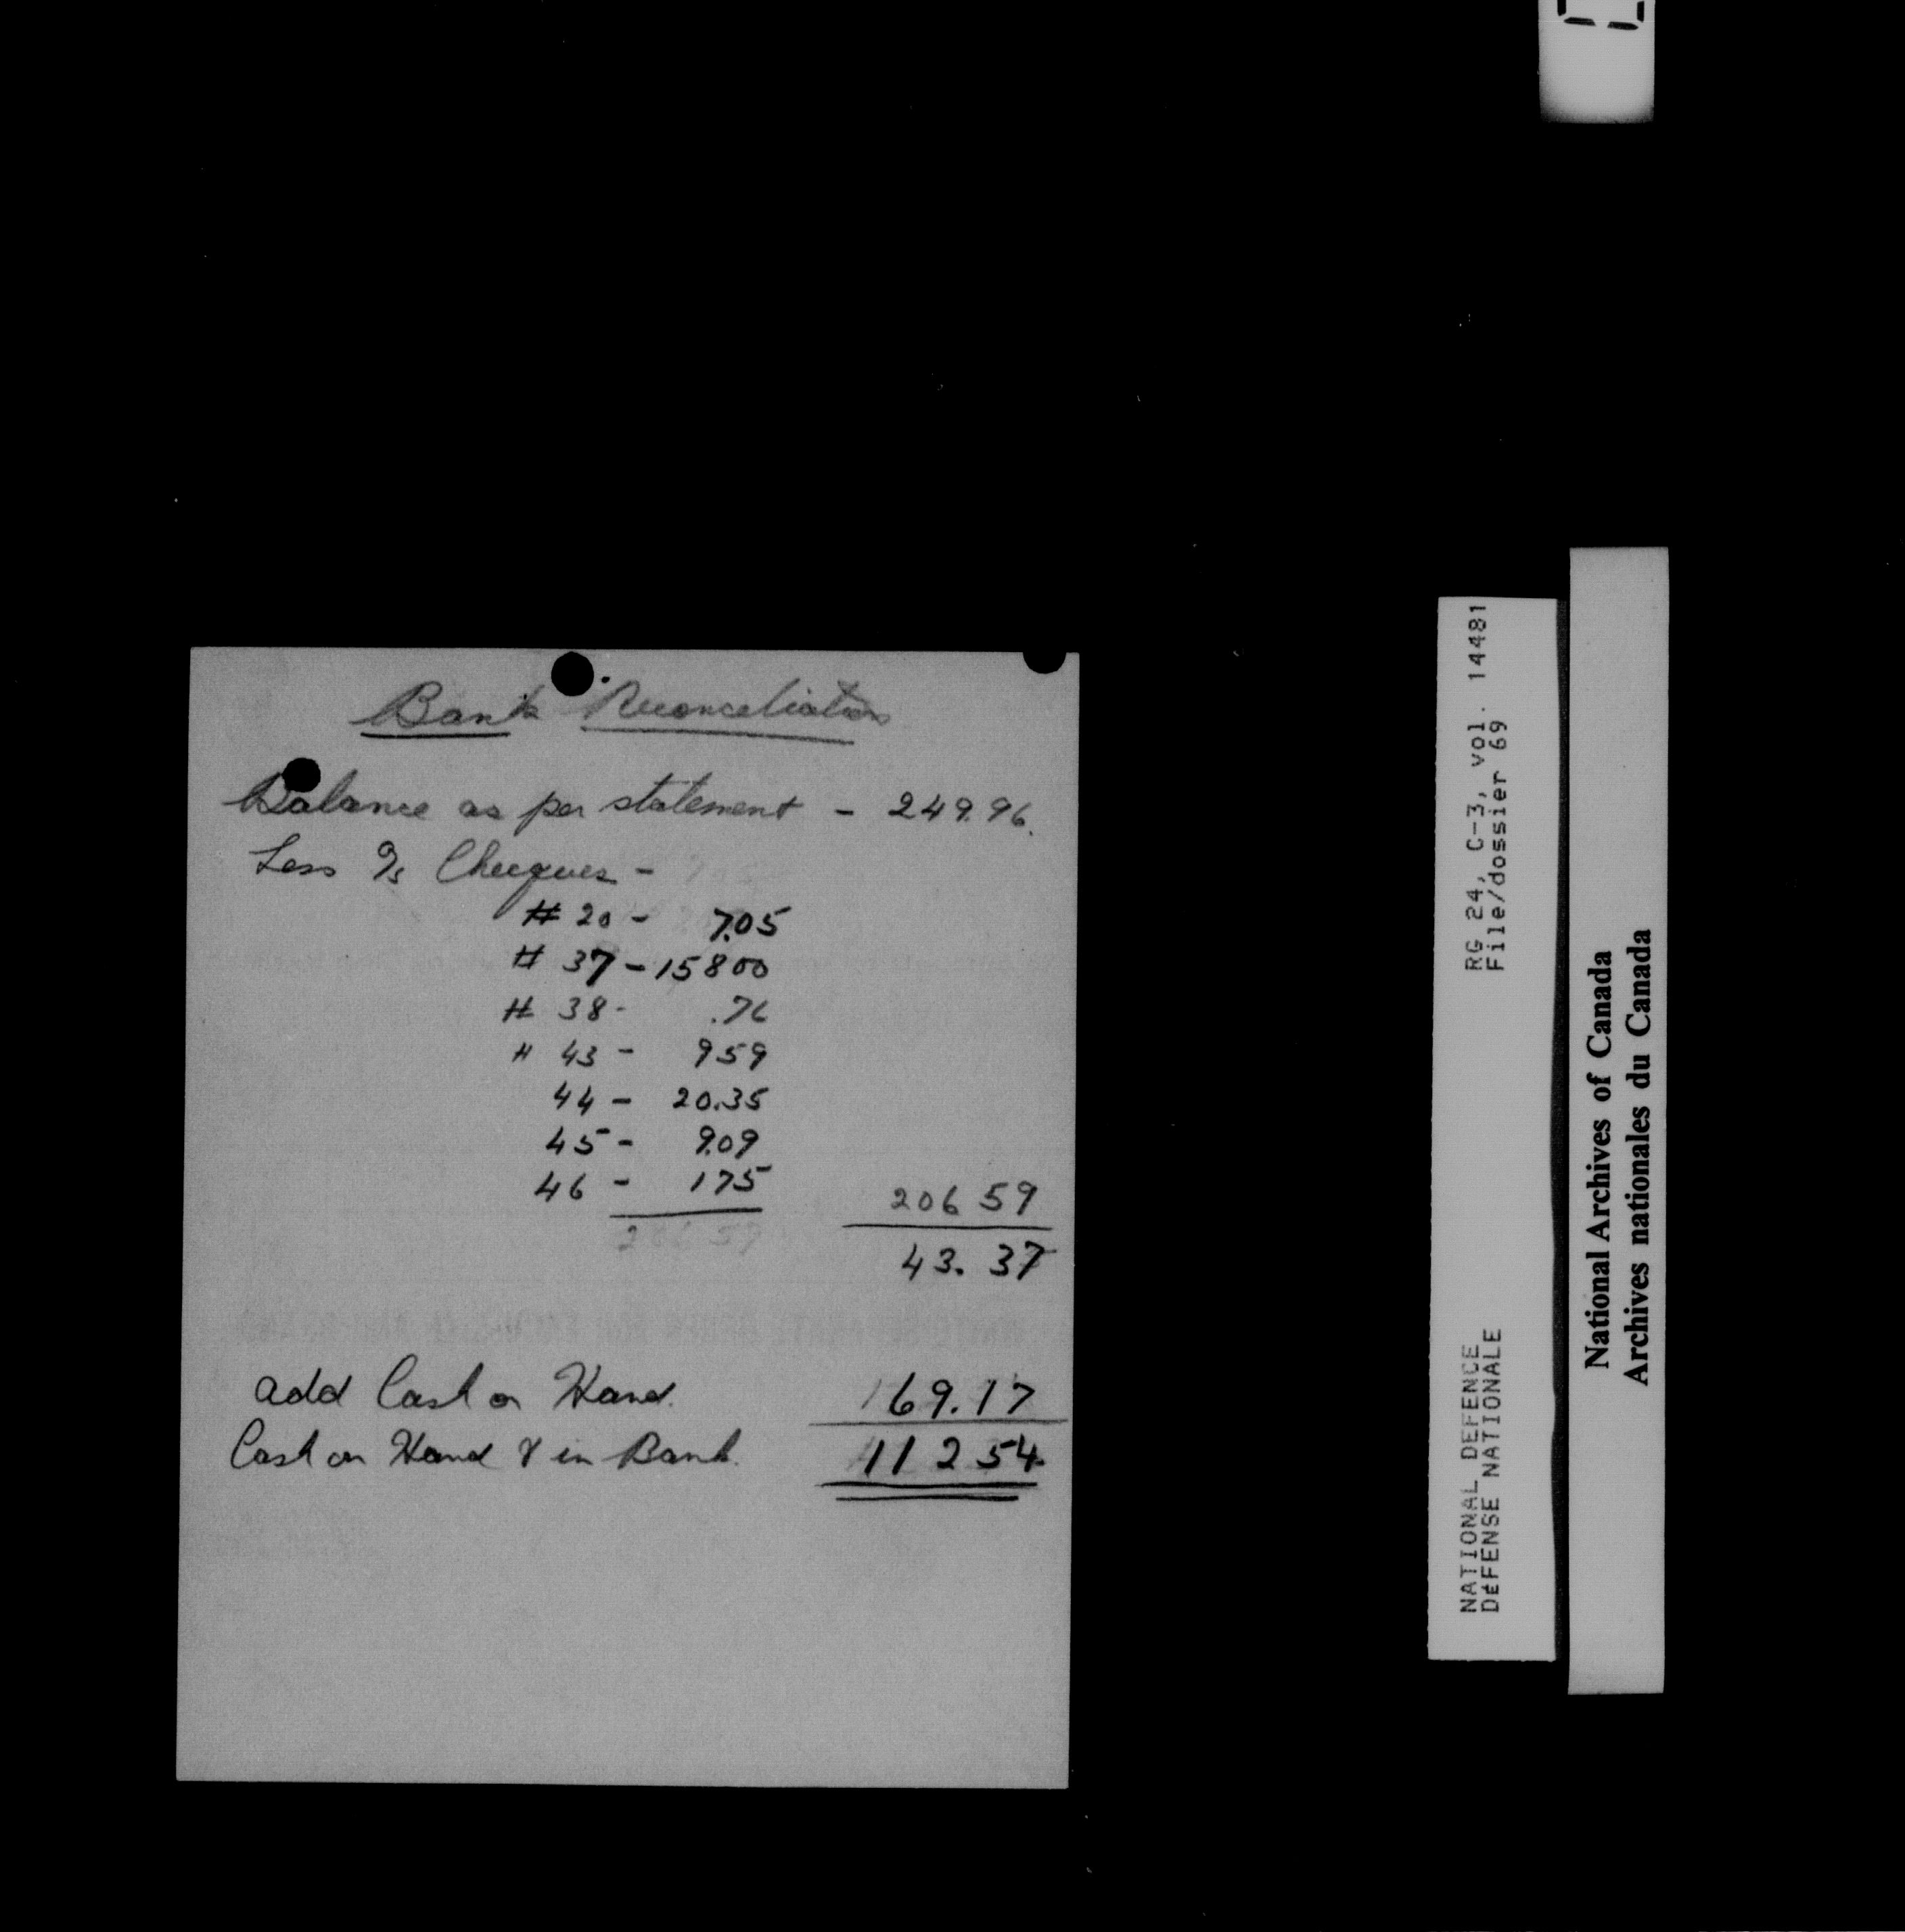 Bank Reconciliation
Balance as per statement - 249.96.
Less O/s Cheques -
# 20 - 7.05
# 37 - 158 00
# 38 - .76
" 43 - 9 59
44 - 20.35
45 - 9.09
46 - 1 75
206 59
206 59
43. 37
add Cash on Hand. 169.17
Cash on Hand & in Bank. 112 54
RG 24, C-3, vol. 14481
File/dossier 69
NATIONAL DEFENCE
DÉFENSE NATIONALE
National Archives of Canada
Archives nationales du Canada